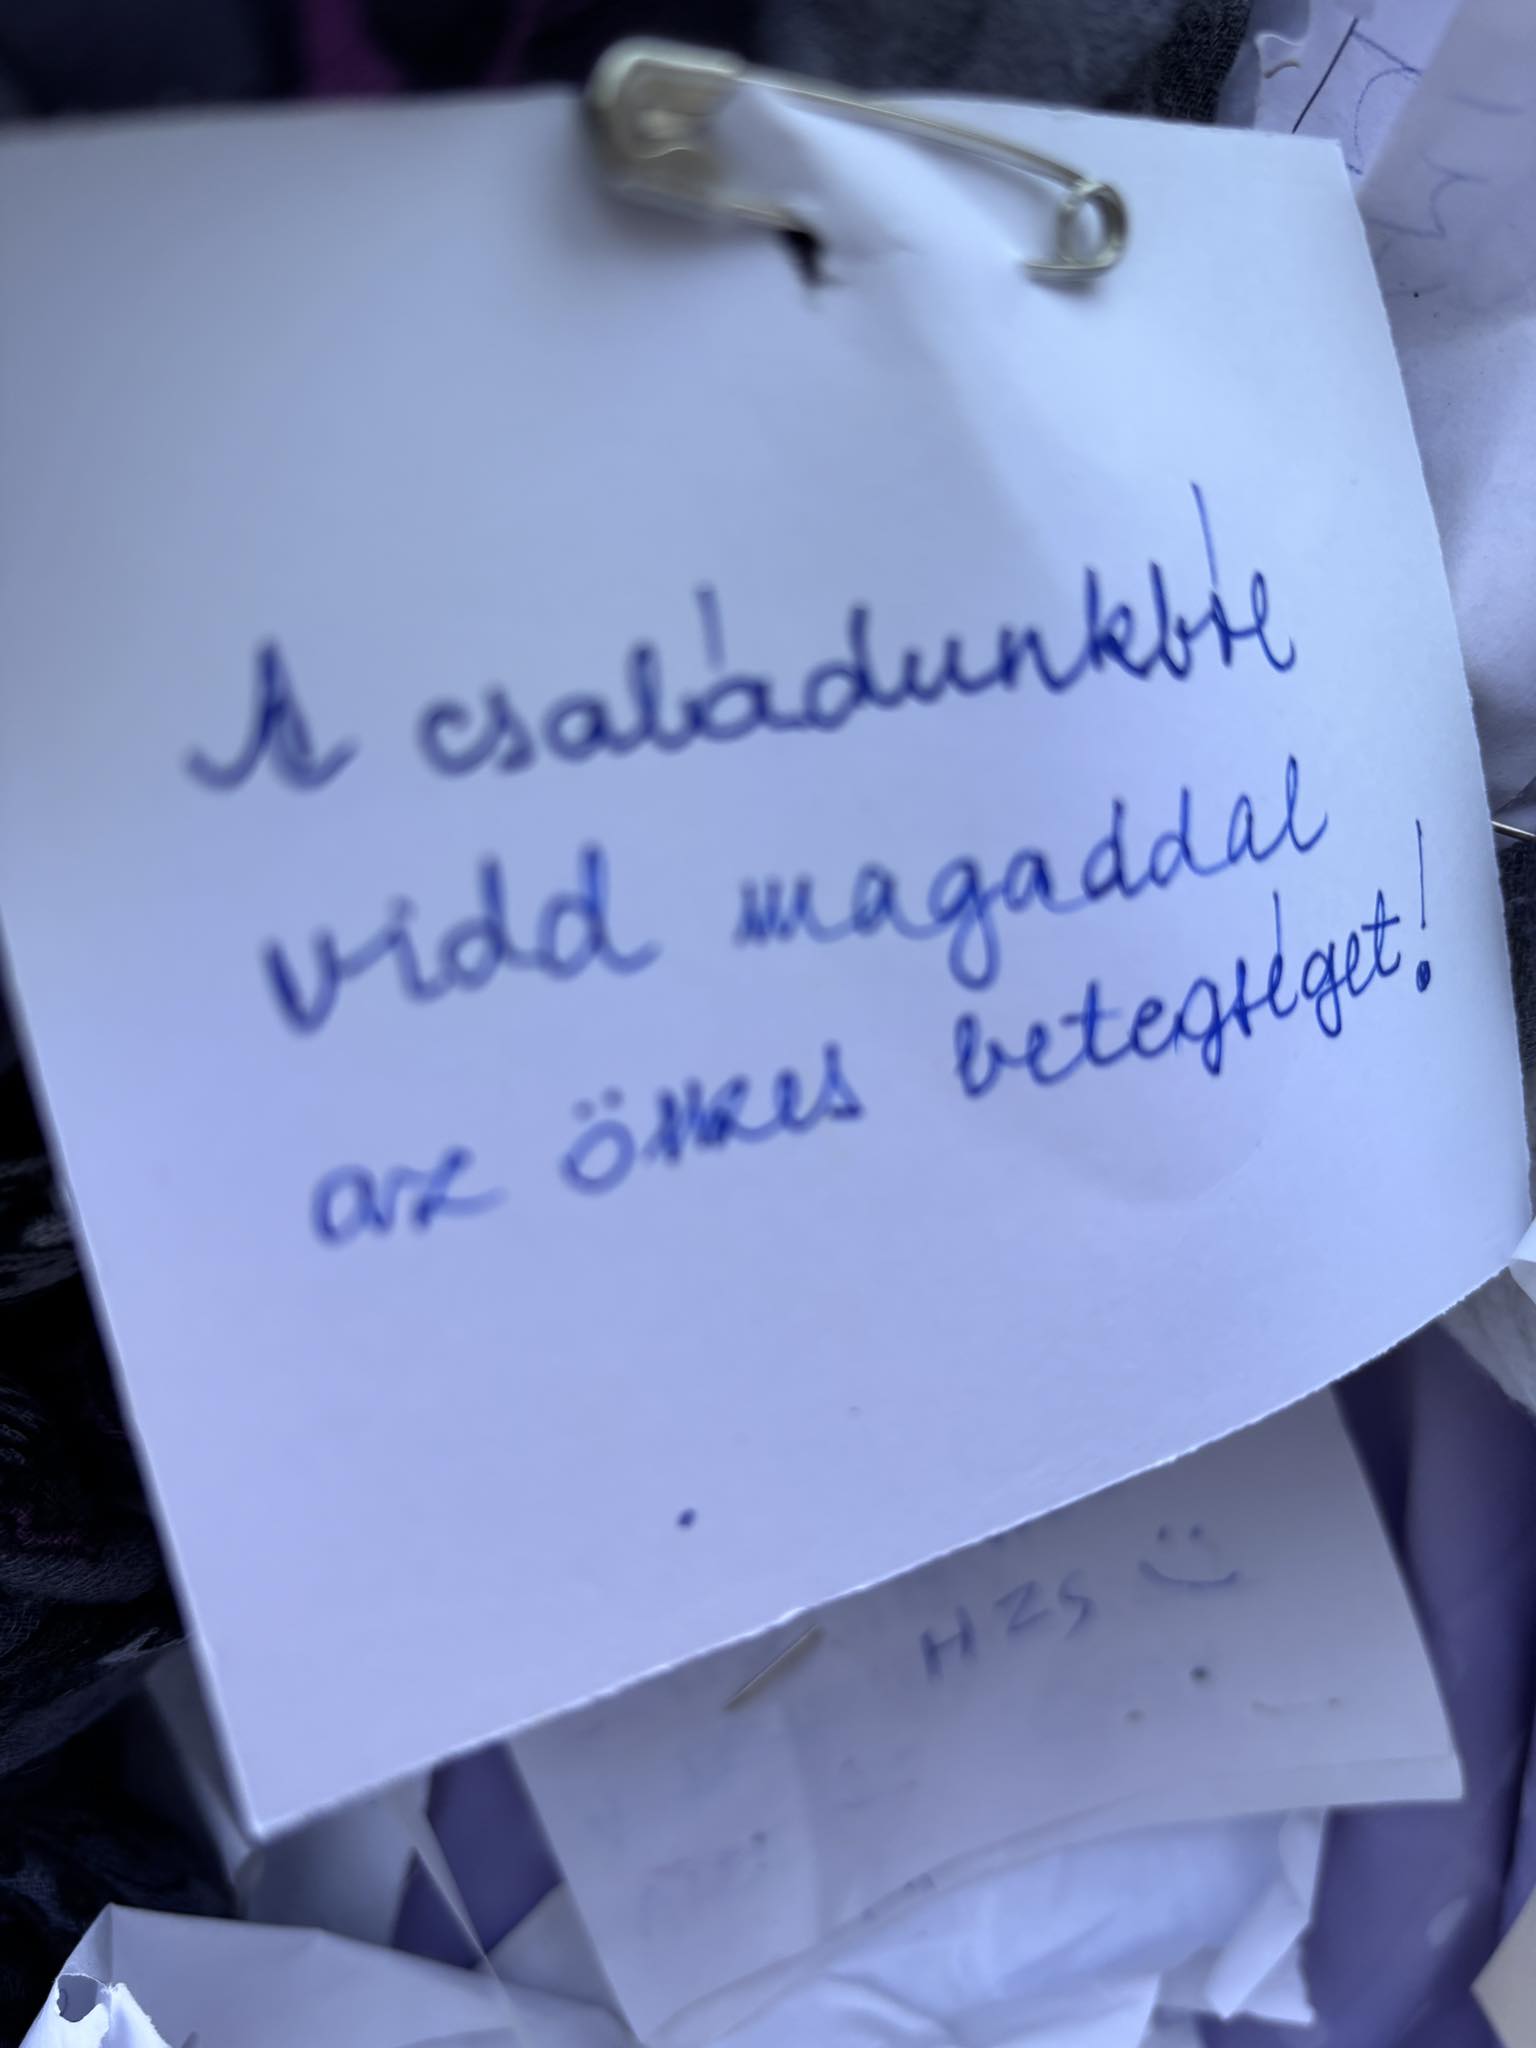 A családunkból
vidd magaddal
az összes betegséget!
HZS